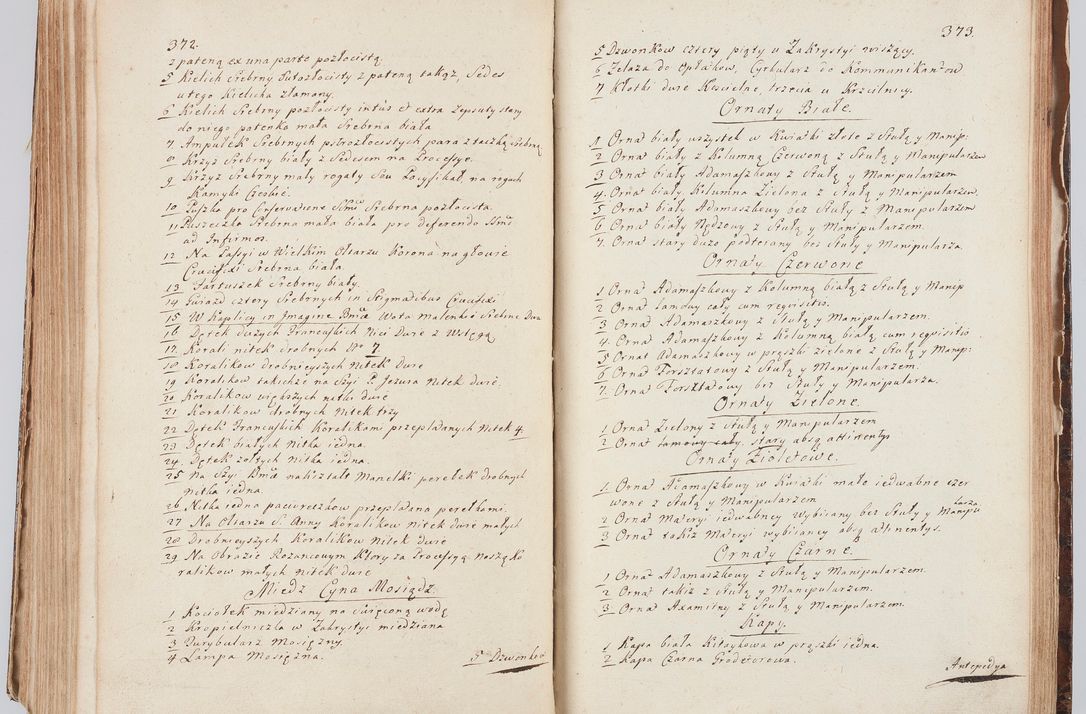 372.
z pateną ex una parte pozłocistą.
5 Kielich Srebrny Potozłocisty z pateną takąż, Sedes
u tego Kielicha złamany.
6 Kielich Srebrny pozłocisty intus et extra zepsuty stary
do niego patenka mała Srebrna biała
7 Ampułek Srebrnych pstrozłocistych para z taczką Srebrną
8 Krzyż Srebrny biały z Sedesem na Processye.
9 Krzyż Srebrny mały rogaty Seu Pacyfikał, na rogach
Kamyki Czeskie.
10 Puszka pro Conservatione SSmi Srebrna pozłocista.
11 Puszeczka Srebrna mała biała pro deferendo SSmo
ad Infirmos.
12 Na Passyi w Wielkim Ołtarzu Korona na głowie
Crucifixi Srebrna biała.
13 Fartuszek Srebrny biały.
14 Gwiazd cztery Srebrnych in Stigmatibus Crucifixi
15 W Kaplicy in Imagine Bmæ Wota maleńkie Srebrne Dwa
16 Dętek dużych Francuskich Nici Dwie z Wstęgą
17. Korali nitek drobnych No 7
18 Koralikow drobnieyszych Nitek Dwie
19 Koralikow takichże na Szyi P. Jezusa Nitek dwie.
20 Koralikow większych nitki dwie
21 Koralikow drobnych Nitek trzy
22 Dętek Francuskich Koralikami przeplatanych Nitek 4.
23 Dętek białych Nitka iedna.
24. Dętek żołtych Nitka iedna.
25 Na Szyi Bmæ nakształt Manelki perełek drobnych
Nitka iedna.
26 Nitka iedna paciureczkow przeplatana perełkami.
27 Na Ołtarzu S. Anny Koralikow nitek dwie małych
28 Drobnieyszych Koralikow Nitek Dwie
29 Na Obrazie Rożańcowym Ktory za Processyą Noszą Ko
ralikow małych Nitek dwie
Miedz Cyna Mosiądz.
1 Kociołek miedziany na święconą wodę
2 Kropielniczka w Zakrystyi miedziana
3 Turybularz Mosiężny.
4 Lampa Mosiężna.
5 Dzwonkow
373.
5 Dzwonkow cztery piąty u Zakrystyi wiszący.
6 Zelaza do Opłatkow, Cyrkularz do Kommunikantow
7 Kłotki dwie Kościelne, trzecia u Krzcilnicy.
Ornaty Białe.
1 Ornat biały wszystek w Kwiatki złote z Stułą y Manip:
2 Ornat biały z Kolumną Czerwoną z Stułą y Manipularzem
3 Ornat biały Adamaszkowy z Stułą y Manipularzem
4. Ornat biały, Kolumna Zielona z Stułą y Manipularzem.
5 Ornat biały Adamaszkowy bez Stuły z Manipularzem
6 Ornat biały Rydzowy z Stułą y Manipularzem.
7. Ornat stary dużo podtarany bez Stuły y Manipularza.
Ornaty Czerwone
1 Ornat Adamaszkowy z Kolumną białą z Stułą y Manip
2 Ornat lamowy cały cum requisitis.
3 Ornat Adamaszkowy z Stułą y Manipularzem.
4. Ornat Adamaszkowy z Kolumną białą cum requisitis
5 Ornat Adamaszkowy w prążki zielone z Stułą y Manip:
6 Ornat Torsztatowy z Stułą y Manipularzem.
7. Ornat Torsztatowy bez Stuły y Manipularza.
Ornaty Zielone.
1 Ornat Zielony z Stułą y Manipularzem
2 Ornat lamowy cały, stary absq attinentys
Ornaty Fioletowe.
1. Ornat Adamaszkowy w Kwiatki małe iedwabne czer
wone z Stułą y Manipularzem
2 Ornat Materyi iedwabney wybiiany bez Stuły y Manipu
larza.
3 Ornat takiż Materyi wybiianey absq attinentys.
Ornaty Czarne.
1 Ornat Adamaszkowy z Stułą y Manipularzem.
2 Ornat takiż z Stułą y Manipularzem.
3. Ornat Axamitny z Stułą y Manipularzem.
Kapy.
1 Kapa biała Kitaykowa w prążki iedna.
2 Kapa Czarna Grodetorowa.
Antepedya